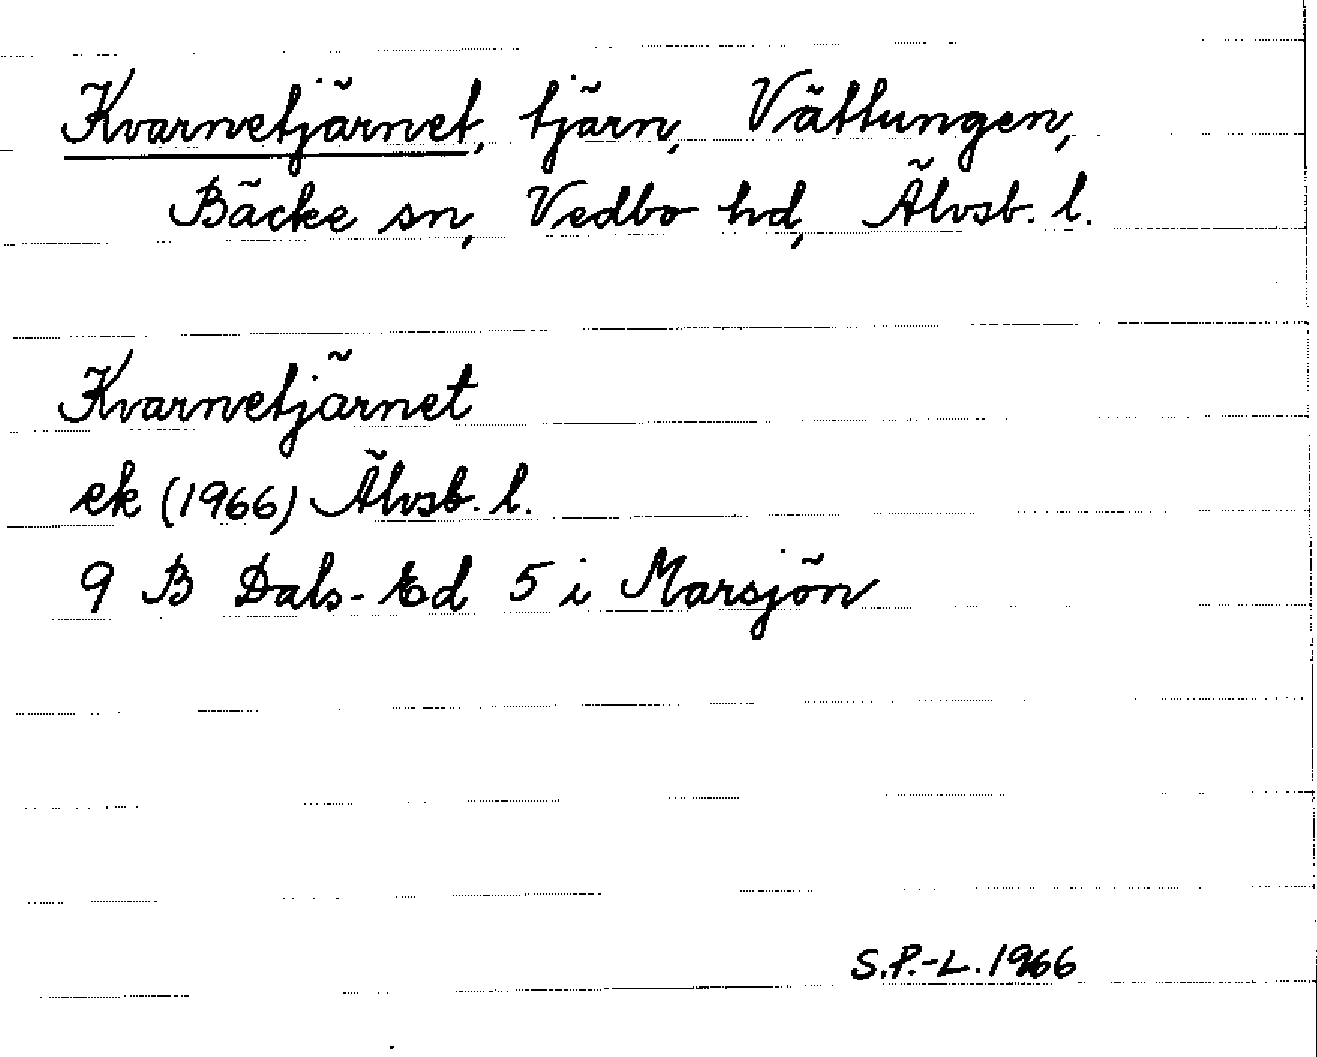 Kvarnetjärnet, tjärn, Vättungen,
Bäcke sn, Vedbo hd, Älvsb. l.
Kvarnetjärnet
ek (1966) Älvsb. l.
9 B Dals-Ed 5 i Marsjön
S.P.-L. 1966